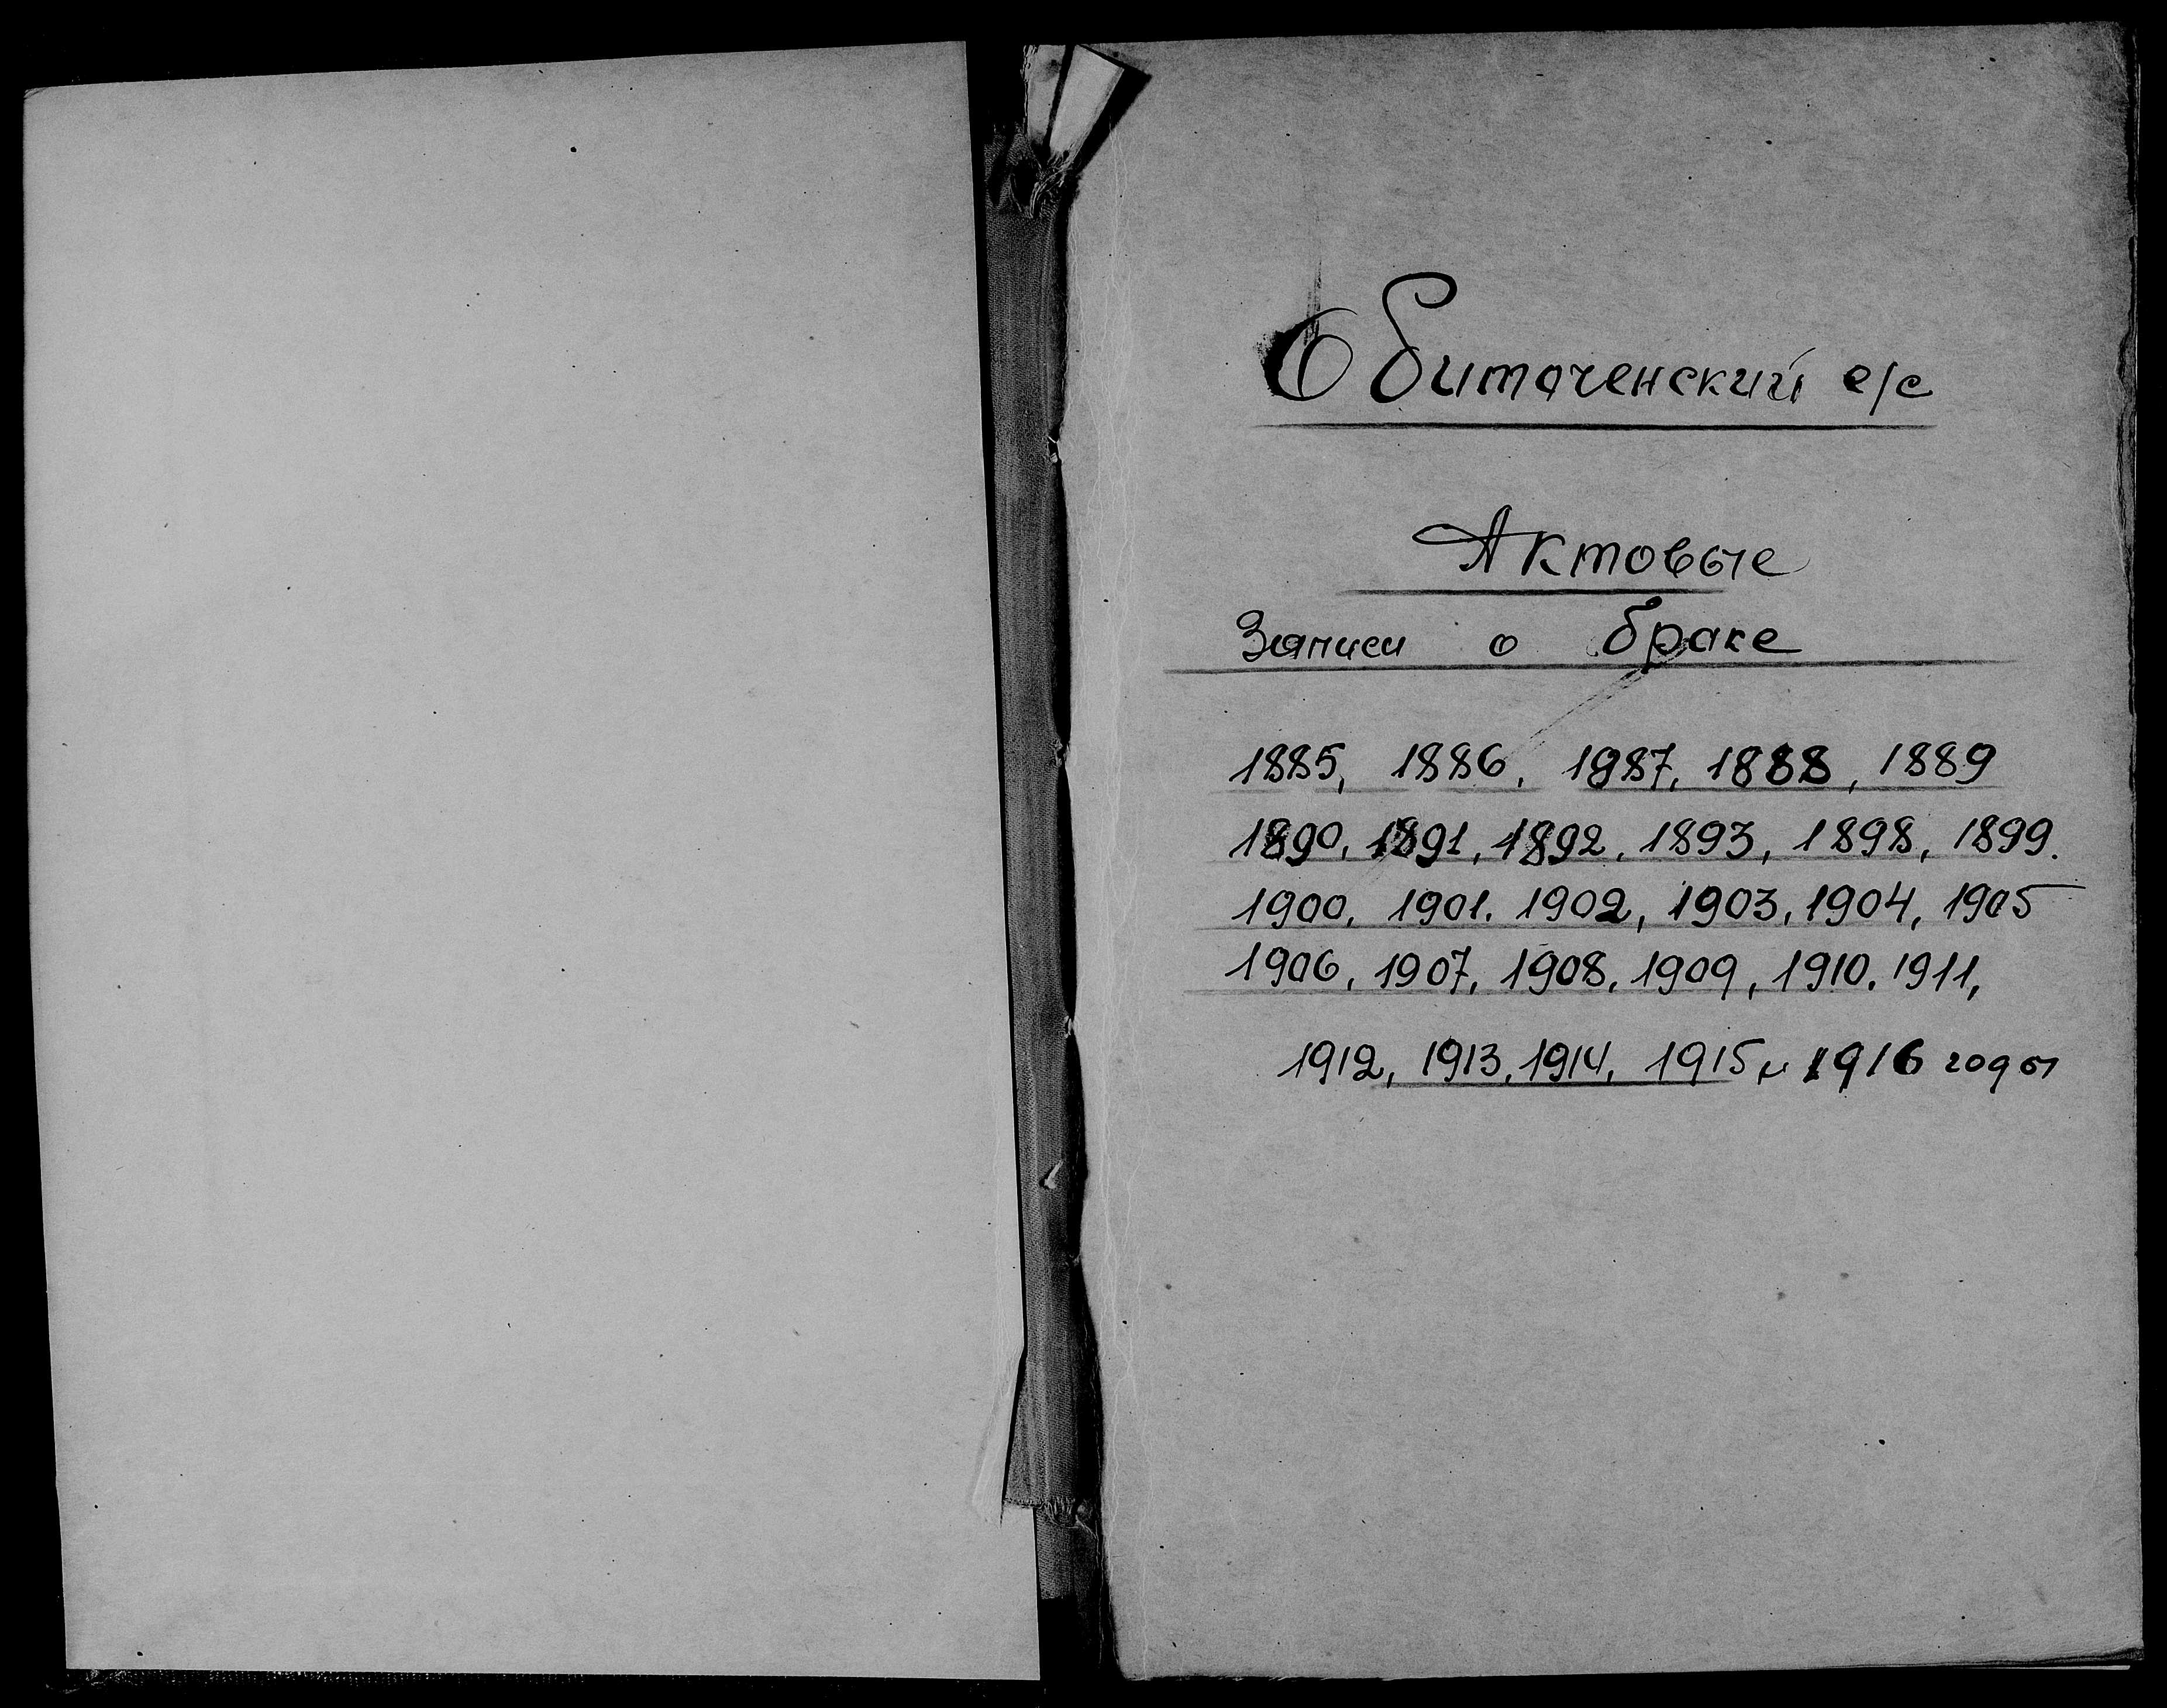 Обиточенский с/с
Актовые
Записи о браке
1885, 1886, 1987, 1888, 1889
1890, 1891, 1892, 1893, 1898, 1899.
1900, 1901. 1902, 1903, 1904, 1905
1906, 1907, 1908, 1909, 1910. 1911,
1912, 1913, 1914, 1915 и 1916 годы